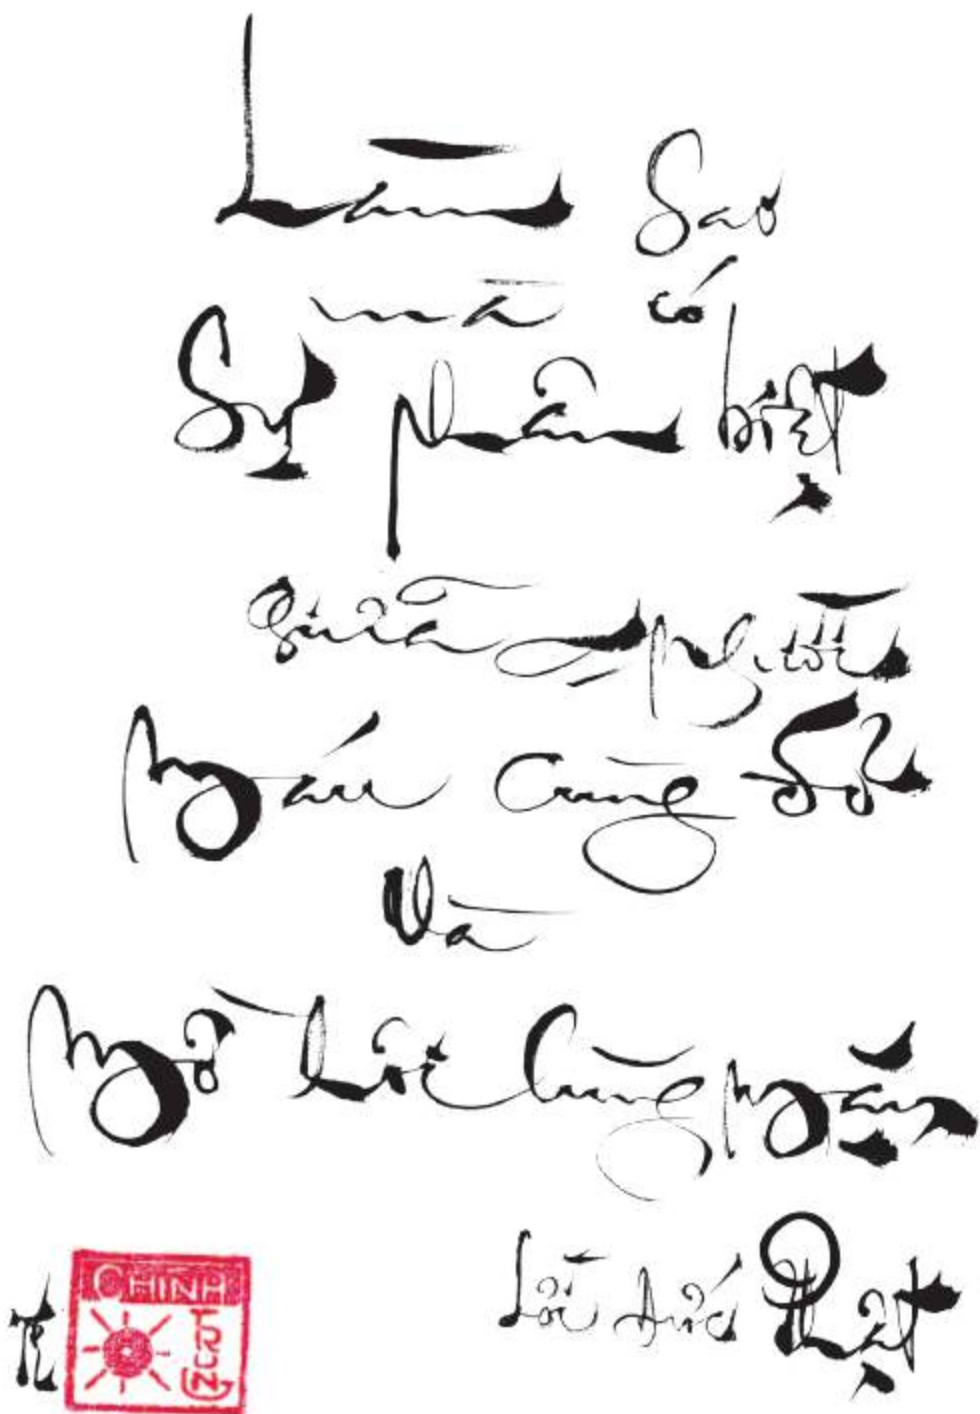 Làm Sao
mà có
Sự phân biệt
giữa Người
Máu Cùng Đỏ
Và
Mồ hôi Cùng Mặn
Lời Đức Phật
CHÍNH
TRUNG